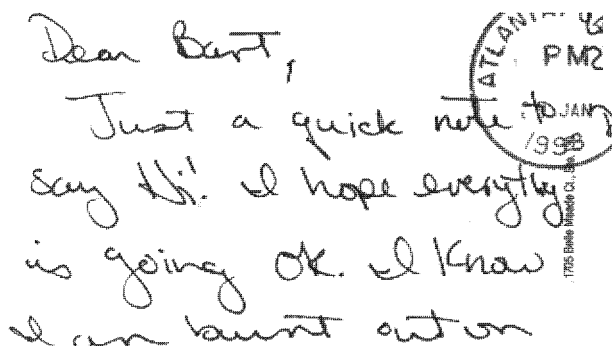 Dear Bart,
Just a quick note to
say Hi! I hope everythg
is going OK. I know
I am burnt out on
ATLANTA
PM
JAN
1998
1705 Belle Meade Ct.